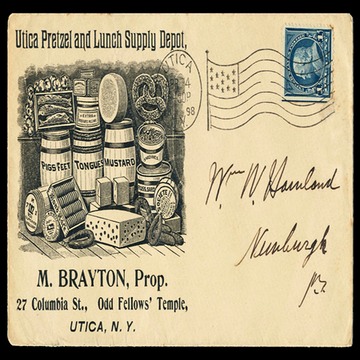 Utica Pretzel and Lunch Supply Depot,
UTICA
98
PIGS FEET
TONGUES
MUSTARD
Wm W Hoinland
Newburgh
M. BRAYTON, Prop.
27 Columbia St., Odd Fellows' Temple,
UTICA, N. Y.